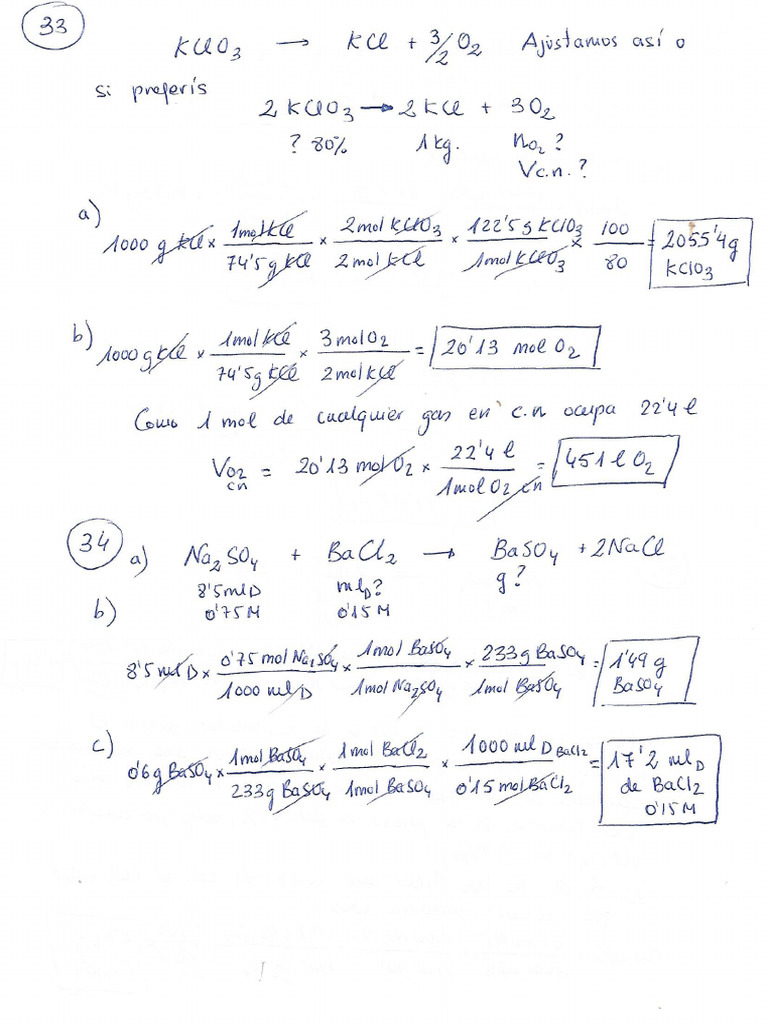 33
KClO3 → KCl + 3/2 O2 Ajustamos así o
si preferís
2 KClO3 → 2 KCl + 3O2
? 80% 1 kg. nO2 ?
Vc.n. ?
a) 1000 g KCl × 1 mol KCl / 74'5 g KCl × 2 mol KClO3 / 2 mol KCl × 122'5 g KClO3 / 1 mol KClO3 × 100 / 80 = 2055'4 g KClO3
b) 1000 g KCl × 1 mol KCl / 74'5 g KCl × 3 mol O2 / 2 mol KCl = 20'13 mol O2
Como 1 mol de cualquier gas en c.n ocupa 22'4 l
VO2 cn = 20'13 mol O2 × 22'4 l / 1 mol O2 cn = 451 l O2
34
a) Na2SO4 + BaCl2 → BaSO4 + 2NaCl
8'5 mlD mlD? g?
0'75 M 0'15 M
b)
8'5 ml D × 0'75 mol Na2SO4 / 1000 ml D × 1 mol BaSO4 / 1 mol Na2SO4 × 233 g BaSO4 / 1 mol BaSO4 = 1'49 g BaSO4
c) 0'6 g BaSO4 × 1 mol BaSO4 / 233 g BaSO4 × 1 mol BaCl2 / 1 mol BaSO4 × 1000 ml D BaCl2 / 0'15 mol BaCl2 = 17'2 mlD de BaCl2 0'15 M